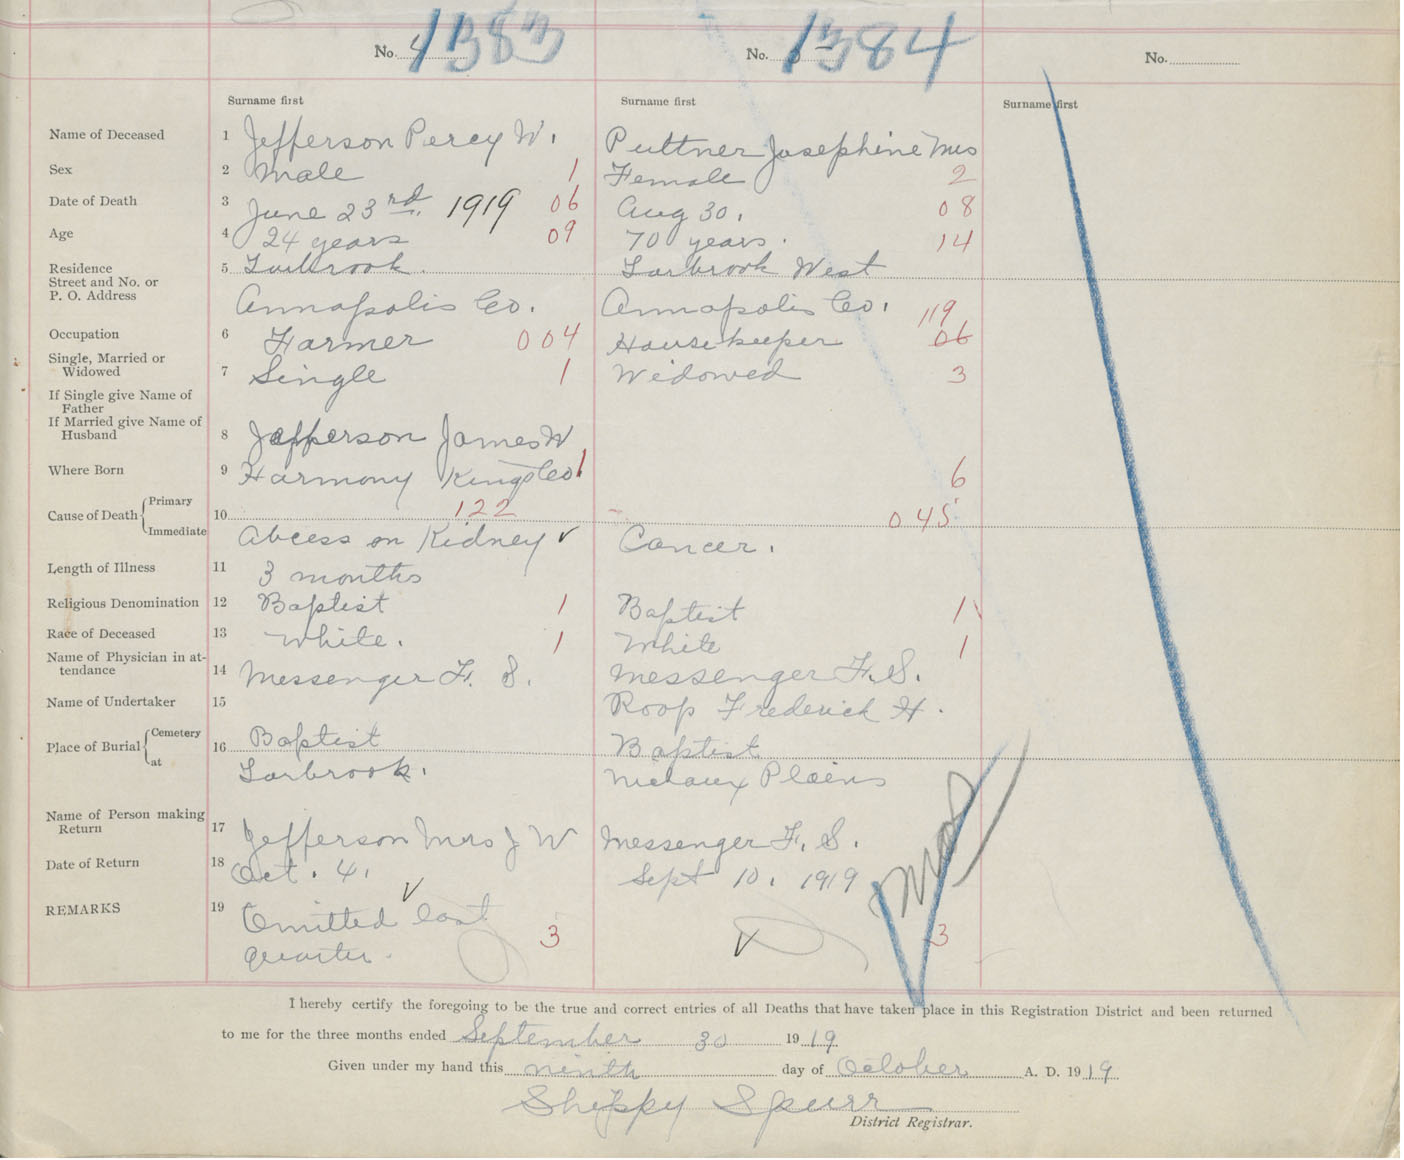 No. 4 1383
No. 5 1384
No.
Surname first
Surname first
Surname first
Name of Deceased 1 Jefferson Percy W. Puttner Josephine Mrs
Sex 2 Male 1 Female 2
Date of Death 3 June 23rd. 1919 06 Aug 30. 08
Age 4 24 years 09 70 years. 14
Residence 5 Torbrook. Torbrook West
Street and No. or
P. O. Address Annapolis Co. Annapolis Co. 119
Occupation 6 Farmer 004 Housekeeper 06
Single, Married or
Widowed 7 Single 1 Widowed 3
If Single give Name of
Father
If Married give Name of
Husband 8 Jefferson James W
Where Born 9 Harmony Kings Co 1 6
Cause of Death Primary 10 122 045
Immediate Abcess on Kidney ✓ Cancer.
Length of Illness 11 3 months
Religious Denomination 12 Baptist 1 Baptist 1
Race of Deceased 13 White. 1 White 1
Name of Physician in at-
tendance 14 Messenger F. S. Messenger F. S.
Name of Undertaker 15 Roop Frederick H.
Place of Burial Cemetery 16 Baptist Baptist
at Torbrook. Nictaux Plains
Name of Person making
Return 17 Jefferson Mrs J W Messenger F. S.
Date of Return 18 Oct. 4. Sept 10. 1919
REMARKS 19 Omitted last
quarter. 3 3
I hereby certify the foregoing to be the true and correct entries of all Deaths that have taken place in this Registration District and been returned
to me for the three months ended September 30 1919
Given under my hand this ninth day of October A. D. 1919
Shippy Spurr
District Registrar.